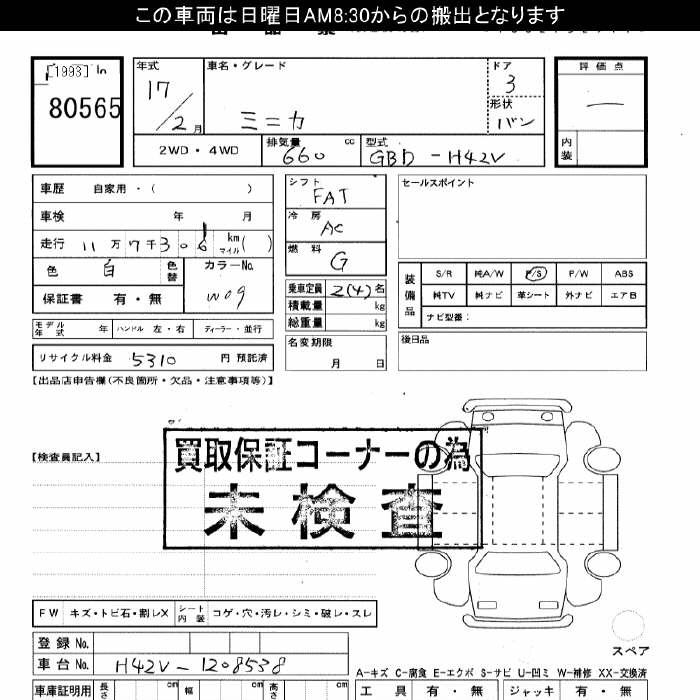 この車両は日曜日AM8:30からの搬出となります
[1993] In
80565
年式
17/2月
車名・グレード
ミニカ
ドア
3
形状
バン
評価点
—
内装
2WD・4WD
排気量 660 cc
型式 GBD-H42V
車歴 自家用・( )
車検 年 月
走行 11万7千306 km マイル ( )
色 白 色替
カラーNo. W09
保証書 有・無
シフト FAT
冷房 AC
燃料 G
乗車定員 2(4) 名
積載量 kg
総重量 kg
セールスポイント
装備品
S/R 純A/W P/S P/W ABS
純TV 純ナビ 革シート 外ナビ エアB
ナビ型番:
モデル年式 年 ハンドル 左・右 ディーラー・並行
名変期限 月 日
後日品
リサイクル料金 5310 円 預託済
【出品店申告欄(不良箇所・欠品・注意事項等)】
【検査員記入】
買取保証コーナーの為
未検査
FW キズ・トビ石・割レX シート内装 コゲ・穴・汚レ・シミ・破レ・スレ
登録No.
車台No. H42V-1208538
スペア
A-キズ C-腐食 E-エクボ S-サビ U-凹ミ W-補修 XX-交換済
車庫証明用 長さ cm 幅 cm 高さ cm
工具 有・無 ジャッキ 有・無